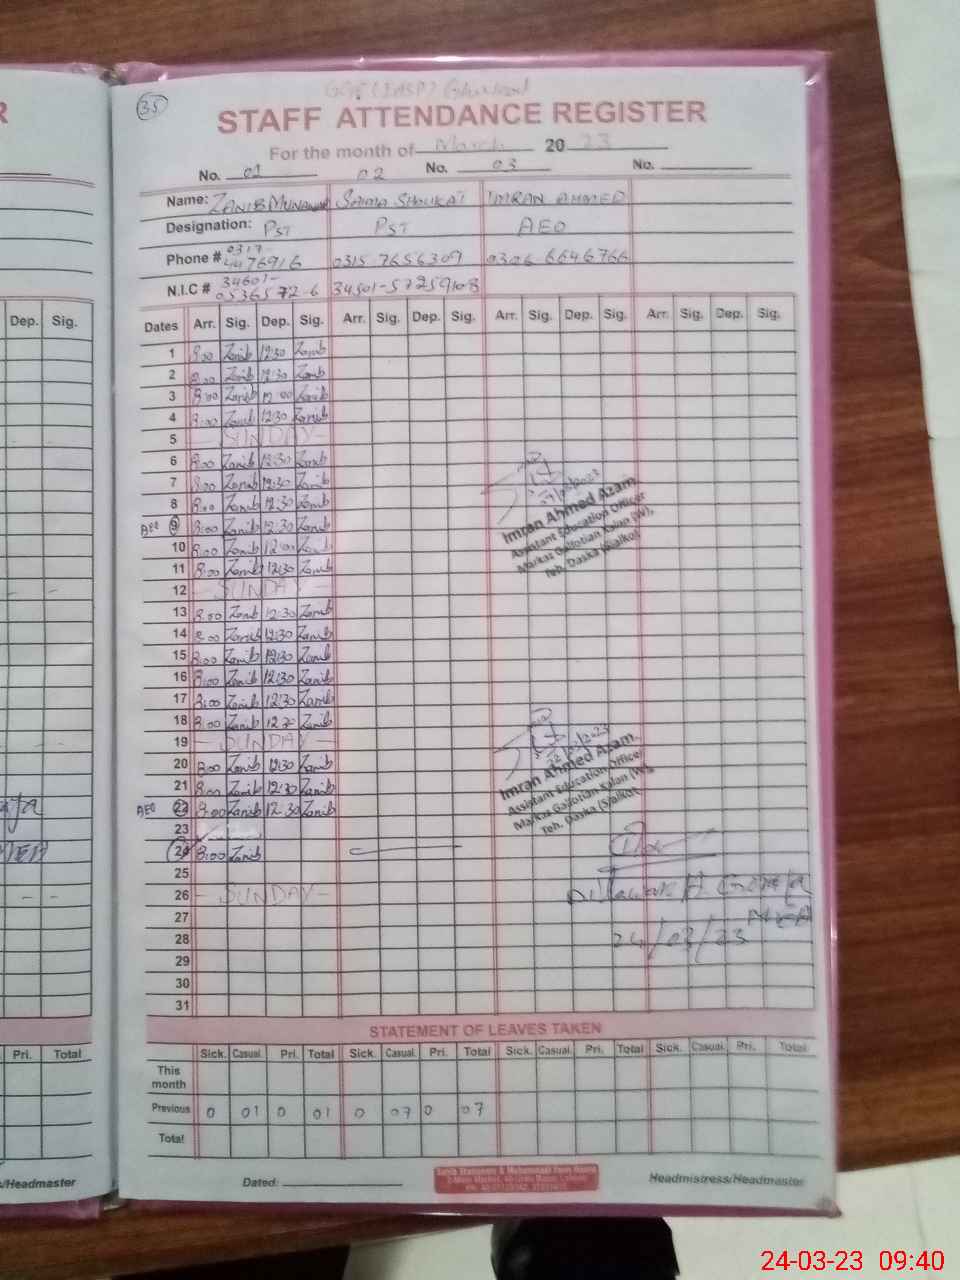 35
STAFF ATTENDANCE REGISTER
For the month of March 20 23
No. 01 02 No. 03 No.
Name: ZANIB MUNAWAR SAIMA SHOUKAT IMRAN AHMED
Designation: PST PST AEO
Phone # 0317-4476916 0315 7656309 0306 6646766
N.I.C # 34601-0536572-6 34501-57259108
Dep. Sig. Dates Arr. Sig. Dep. Sig. Arr. Sig. Dep. Sig. Arr. Sig. Dep. Sig. Arr. Sig. Dep. Sig.
1 8:00 Zanib 12:30 Zanib
2 8:00 Zanib 12:30 Zanib
3 8:00 Zanib 12:00 Zanib
4 8:00 Zanib 12:30 Zanib
5 - SUNDAY -
6 8:00 Zanib 12:30 Zanib
7 8:00 Zanib 12:30 Zanib
8 8:00 Zanib 12:30 Zanib
AEO 9 8:00 Zanib 12:30 Zanib
Imran Ahmed Azam
Assistant Education Officer
Markaz Galotian Kalan (W),
Teh. Daska (Sialkot
10 8:00 Zanib 12:00 Zanib
11 8:00 Zanib 12:30 Zanib
12 - SUNDAY -
13 8:00 Zanib 12:30 Zanib
14 8:00 Zanib 12:30 Zanib
15 8:00 Zanib 12:30 Zanib
16 8:00 Zanib 12:30 Zanib
17 8:00 Zanib 12:30 Zanib
18 8:00 Zanib 12:30 Zanib
19 - SUNDAY -
20 8:00 Zanib 12:30 Zanib
21 8:00 Zanib 12:30 Zanib
AEO 22 8:00 Zanib 12:30 Zanib
22/03/2023
Imran Ahmed Azam
Assistant Education Officer
Markaz Galotian Kalan (W),
Teh. Daska (Sialkot
23
24 8:00 Zanib
25
26 - SUNDAY -
27
28 24/03/23
29
30
31
STATEMENT OF LEAVES TAKEN
Pri. Total Sick. Casual. Pri. Total Sick. Casual. Pri. Total Sick. Casual. Pri. Total Sick. Casual. Pri. Total
This month
Previous 0 01 0 01 0 07 0 07
Total
/Headmaster Dated: Headmistress/Headmaster
24-03-23 09:40